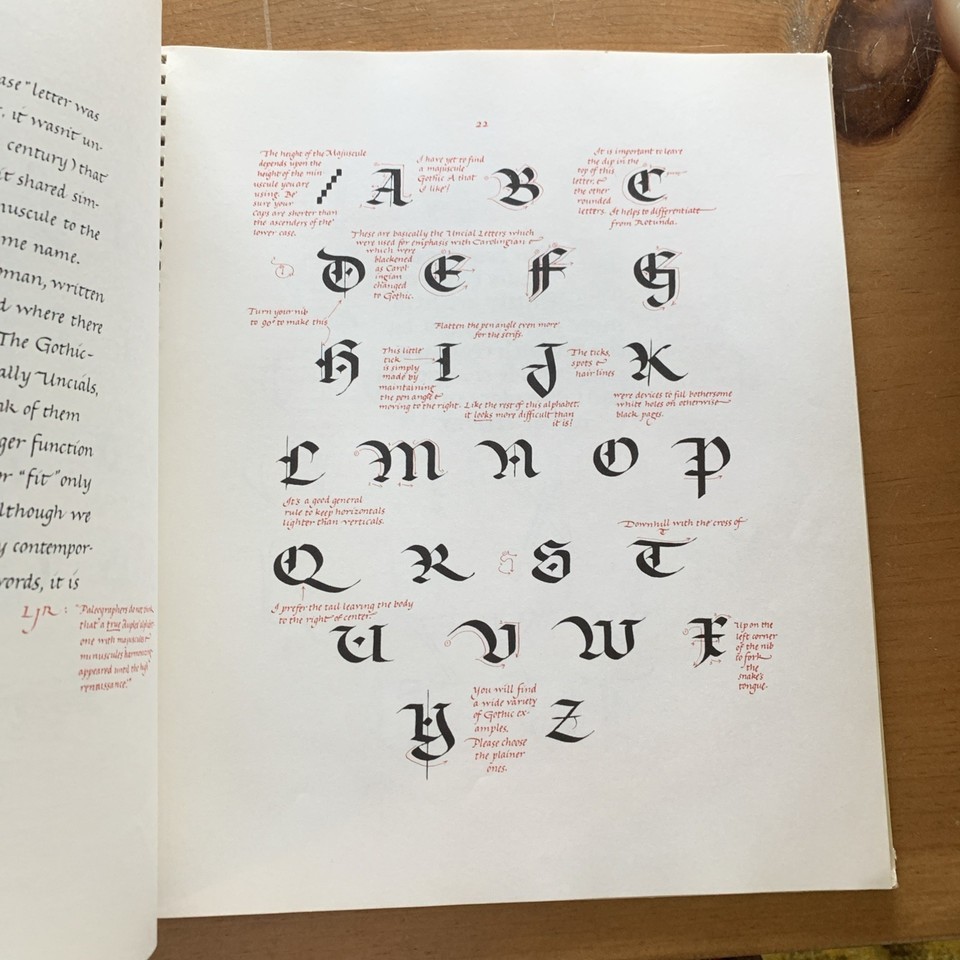 ase" letter was
, it wasn't un-
century) that
it shared sim-
nuscule to the
me name.
oman, written
d where there
The Gothic-
ally Uncials,
nk of them
ger function
or "fit" only
lthough we
y contempor-
words, it is
LJR: "Paleographers do not think
that a true
one with majuscule
minuscules
appeared until the high
renaissance."
22
The height of the Majuscule
depends upon the
height of the min
uscule you are
using. Be
sure your
caps are shorter than
the ascenders of the
lower case.
A
I have yet to find
a majuscule
Gothic A that
I like!
B
It is important to leave
the dip in the
top of this
letter, &
the other
rounded
letters. It helps to differentiate
from Rotunda.
C
These are basically the Uncial Letters which
were used for emphasis with Carolingian &
which were
blackened
as Carol
ingian
changed
to Gothic.
D E F G
Turn your nib
to 90° to make this
Flatten the pen angle even more
for the serifs.
H
This little
tick
is simply
made by
maintaining
the pen angle &
moving to the right.
I J
The ticks,
spots &
hair lines
K
were devices to fill bothersome
white holes on otherwise
black pages.
Like the rest of this alphabet,
it looks more difficult than
it is!
L M N O P
It's a good general
rule to keep horizontals
lighter than verticals.
Downhill with the cross of
T
Q R S S T
I prefer the tail leaving the body
to the right of center.
U V W X
Up on the
left corner
of the nib
to fork
the
snake's
tongue.
Y
You will find
a wide variety
of Gothic ex-
amples.
Please choose
the plainer
ones.
Z